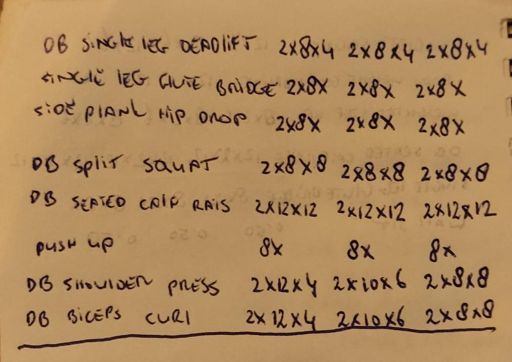 DB SINGLE LEG DEADLIFT 2x8x4 2x8x4 2x8x4
SINGLE LEG GLUTE BRIDGE 2x8x 2x8x 2x8x
SIDE PLANK HIP DROP 2x8x 2x8x 2x8x
DB SPLIT SQUAT 2x8x8 2x8x8 2x8x8
DB SEATED CALF RAIS 2x12x12 2x12x12 2x12x12
PUSH UP 8x 8x 8x
DB SHOULDER PRESS 2x12x4 2x10x6 2x8x8
DB BICEPS CURL 2x12x4 2x10x6 2x8x8